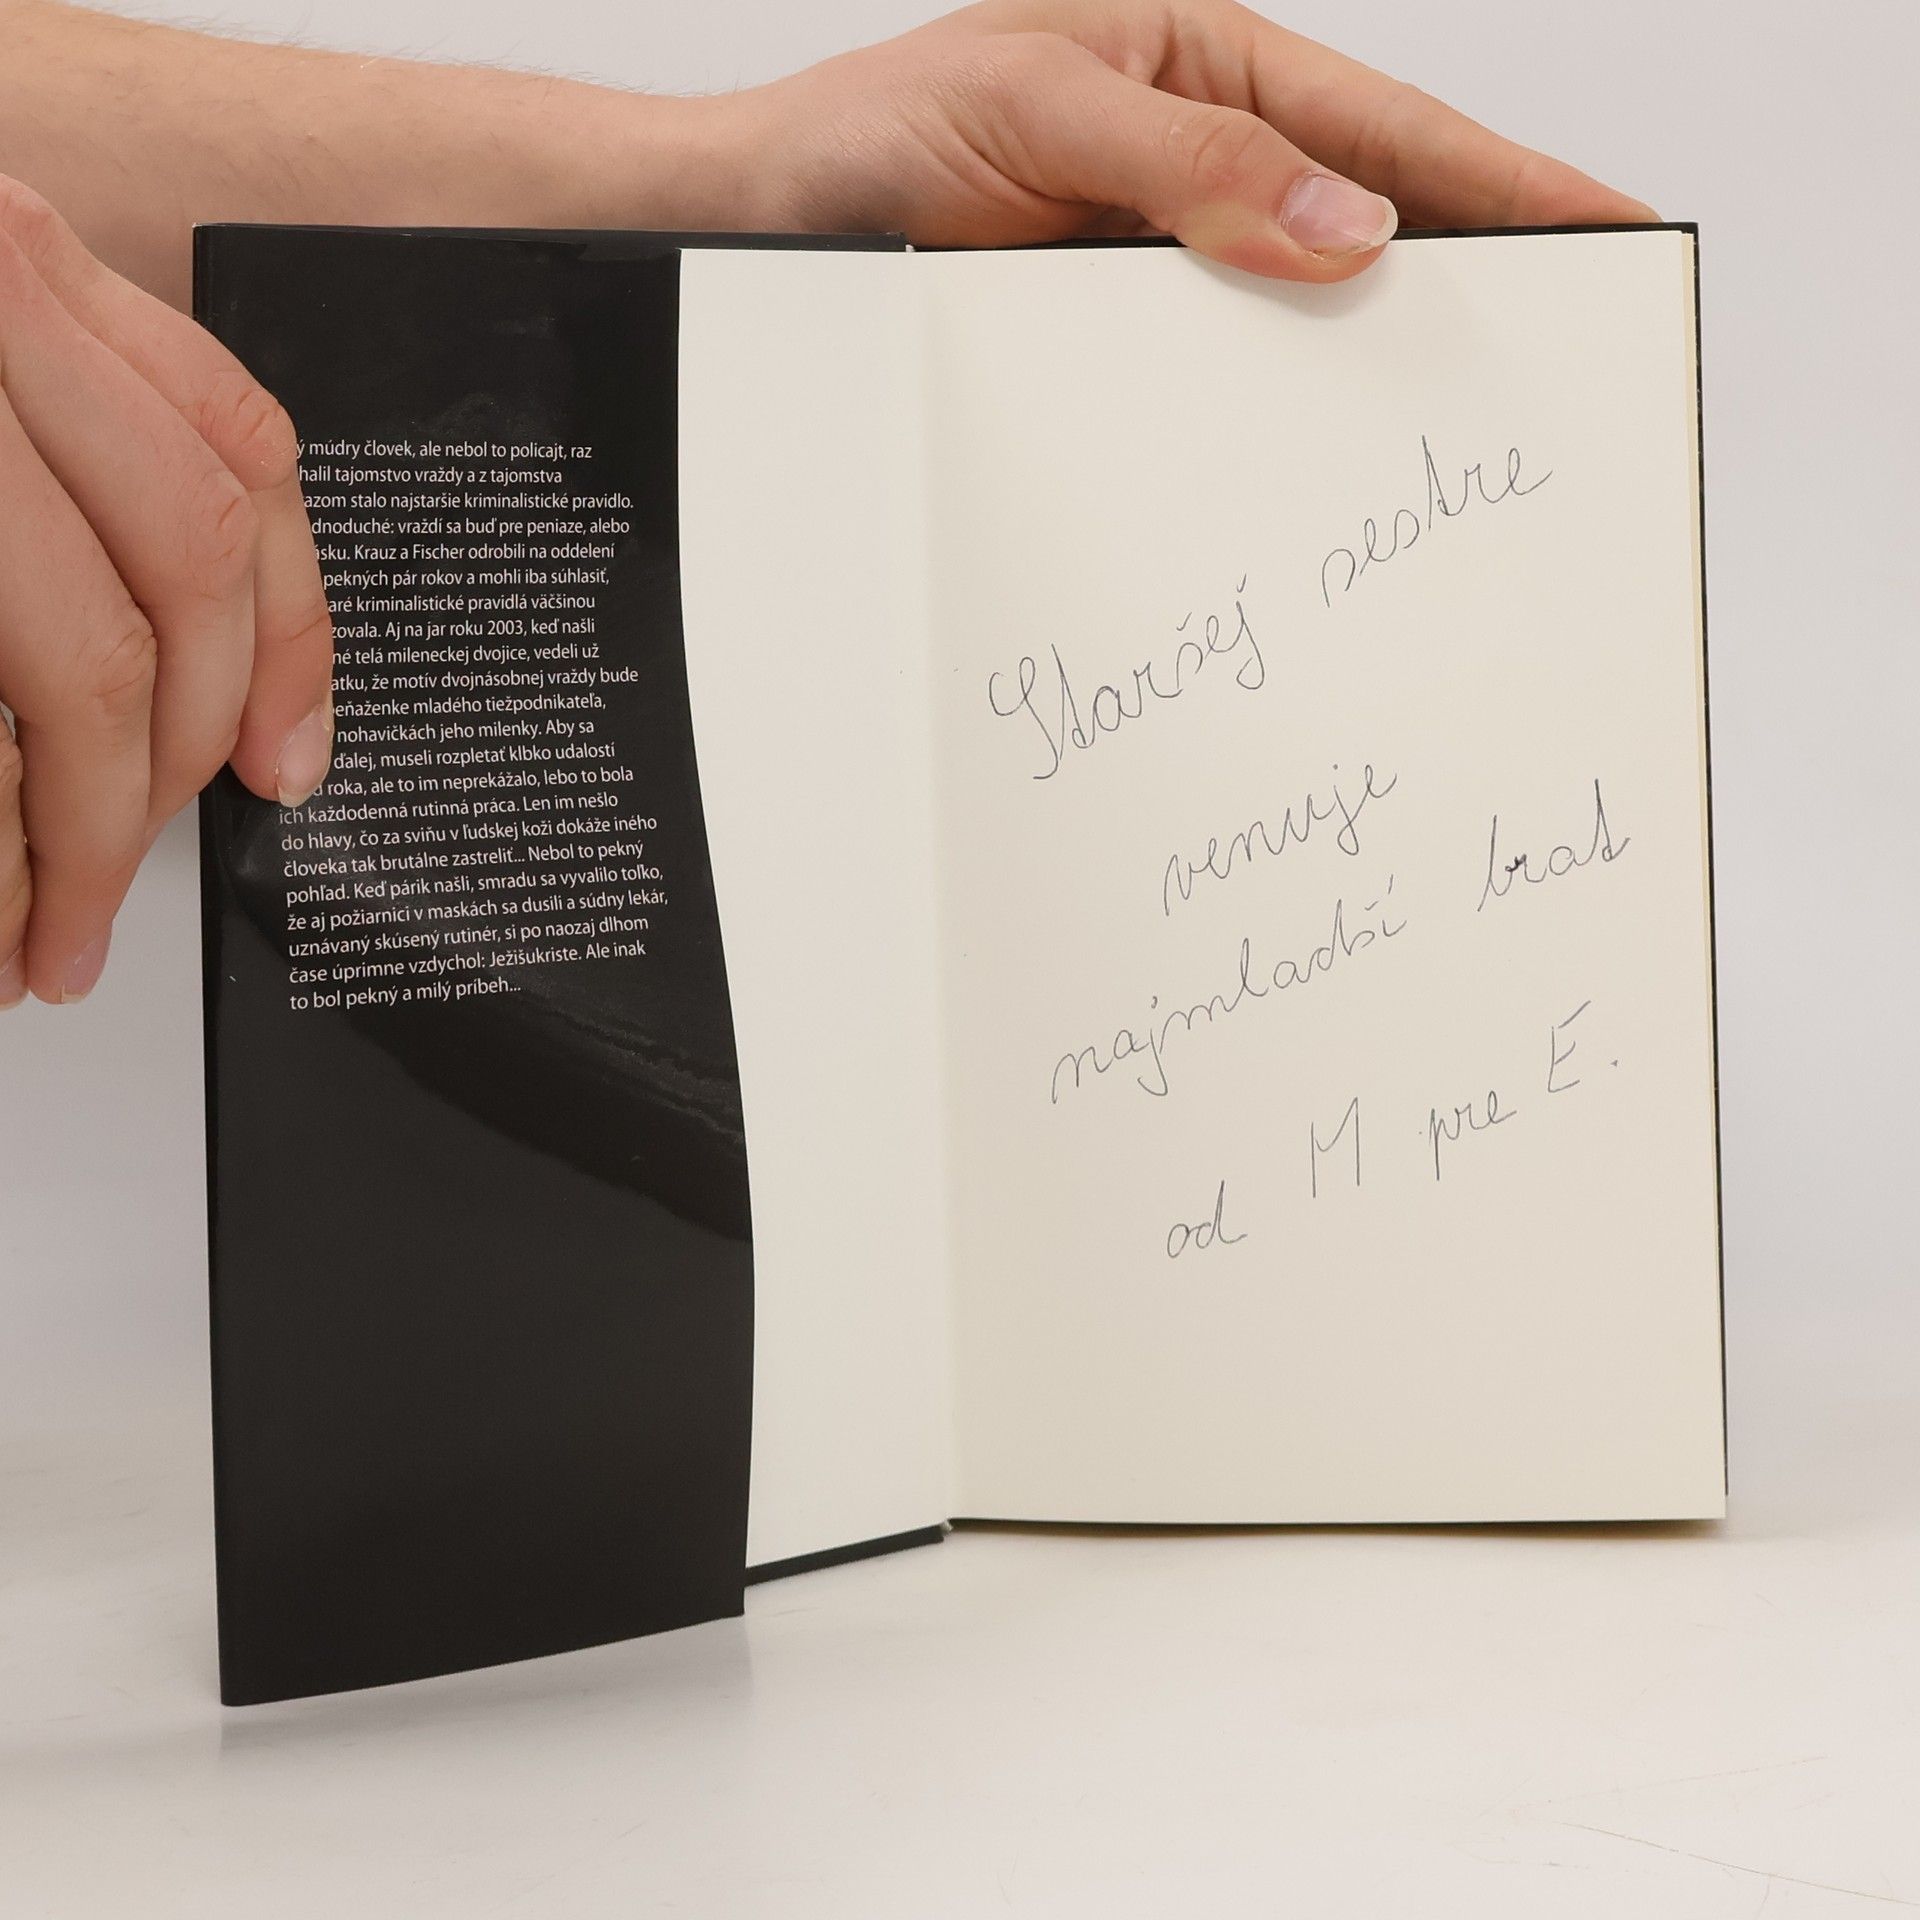 múdry človek, ale nebol to policajt, raz
tajomstvo vraždy a z tajomstva
stalo najstaršie kriminalistické pravidlo.
vraždí sa buď pre peniaze, alebo
Krauz a Fischer odrobili na oddelení
pekných pár rokov a mohli iba súhlasiť,
kriminalistické pravidlá väčšinou
Aj na jar roku 2003, keď našli
telá mileneckej dvojice, vedeli už
že motív dvojnásobnej vraždy bude
mladého tiežpodnikateľa,
nohavičkách jeho milenky. Aby sa
ďalej, museli rozpletať klbko udalostí
roka, ale to im neprekážalo, lebo to bola
ich každodenná rutinná práca. Len im nešlo
do hlavy, čo za sviňu v ľudskej koži dokáže iného
človeka tak brutálne zastreliť... Nebol to pekný
pohľad. Keď párik našli, smradu sa vyvalilo toľko,
že aj požiarnici v maskách sa dusili a súdny lekár,
uznávaný skúsený rutinér, si po naozaj dlhom
čase úprimne vzdychol: Ježišukriste. Ale inak
to bol pekný a milý príbeh...
Staršej sestre
venuje
najmladší brat
od M pre E.